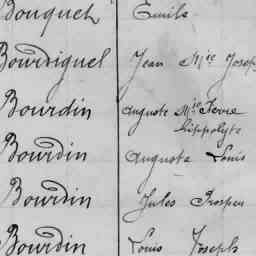 Bouquet Emile
Bourdiguel Jean Mie Joseph
Bourdin Auguste Mie Pierre
hippolyte
Bourdin Auguste Louis
Bourdin Jules Prosper
Bourdin Louis Joseph